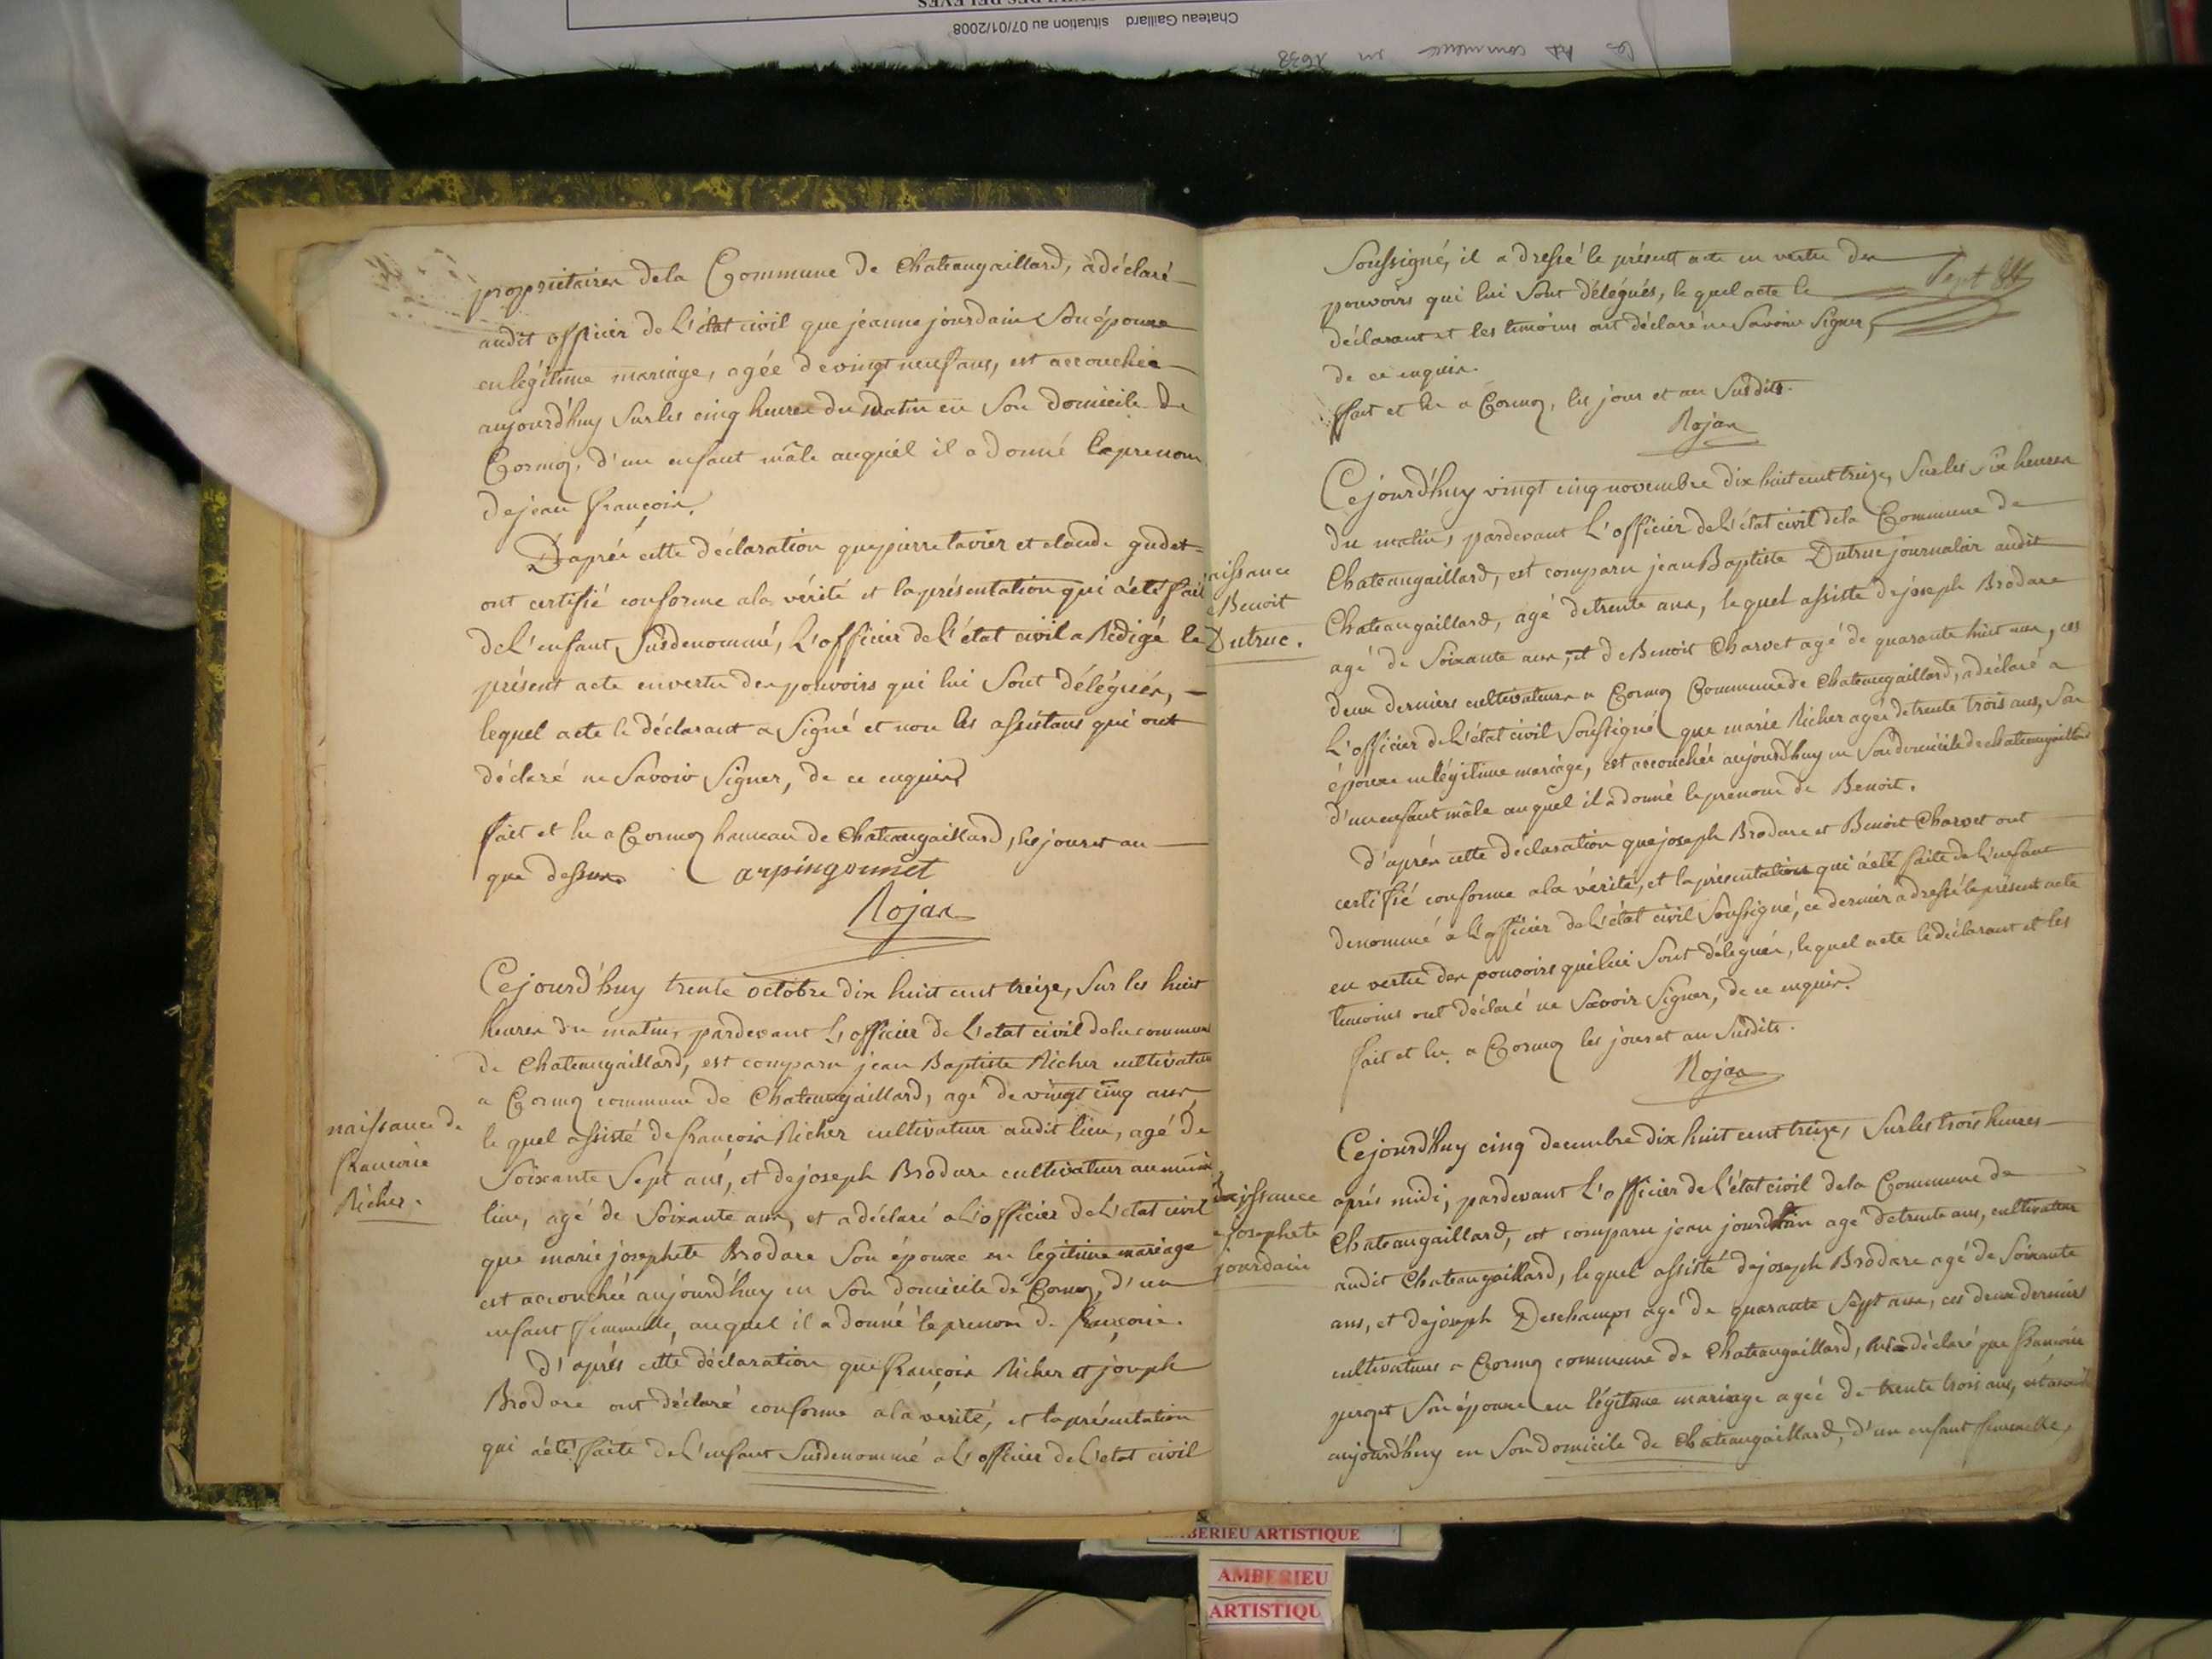 Chateau Gaillard situation au 07/01/2008
propriétaires dela Commune de Chateaugaillard, a déclaré
audit officier de L'état civil que jeanne jourdain Son épouse
en légitime mariage, agée de vingt neuf ans, est accouchée
aujourd'huy Sur les cinq heures du matin en Son domicile de
Cormoz, d'un enfant mâle auquel il a donné le prenom
de jean françois.
D'après cette déclaration que pierre tavier et claude gudet
ont certifié conforme ala vérité et la présentation qui a été faite
de L'enfant Susdenommé, L'officier de L'état civil a Rédigé le
présent acte en vertu des pouvoirs qui lui Sont délégués,
lequel acte le déclarant a Signé et non les assistans qui ont
déclaré ne Savoir Signer, de ce enquis
fait et lu a Cormoz hameau de Chateaugaillard, les jour et an
que dessus. arpingonnet
Rojas
naissance de
francoise
Richer.
Cejourd'huy trente octobre dix huit cent treize, Sur les huit
heures du matin, pardevant L'officier de L'etat civil dela commune
de Chateaugaillard, est comparu jean Baptiste Richer cultivateur
a Cormoz commune de Chateaugaillard, agé de vingt cinq ans,
lequel assisté de françois Richer cultivateur audit lieu, agé de
Soixante Sept ans, et de joseph Brodare cultivateur au même
lieu, agé de Soixante ans, et a déclaré a L'officier de L'etat civil
que marie josephete Brodare Son épouse en legitime mariage
est accouchée aujourd'huy en Son domicile de Cormoz, d'un
enfant femmelle, auquel il a donné le prenom de françoise.
d'après cette déclaration que françois Richer et joseph
Brodare ont déclaré conforme ala vérité, et la présentation
qui a été faite de L'enfant Susdenommé a L'officier de L'etat civil
Soussigné, il a dressé le présent acte en vertu des
pouvoirs qui lui Sont délégués, lequel acte le
déclarant et les temoins ont déclaré ne Savoir Signer,
de ce enquis.
fait et lu a Cormoz, les jour et an Susdits.
Rojas
aissance
Benoit
Dutruc.
Cejourd'huy vingt cinq novembre dix huit cent treize, Sur les Six heures
du matin, pardevant L'officier de L'état civil dela Commune de
Chateaugaillard, est comparu jean Baptiste Dutruc journalier audit
Chateaugaillard, agé de trente ans, lequel assiste de joseph Brodare
agé de Soixante ans, et de Benoit Charvet agé de quarante huit ans, ces
deux derniers cultivateurs a Cormoz Commune de Chateaugaillard, a déclaré a
L'officier de L'état civil Soussigné que marie Richer agée de trente trois ans, Son
épouse en légitime mariage, est accouchée aujourd'huy en Son domicile de chateaugaillard
d'un enfant mâle auquel il a donné le prenom de Benoit.
d'après cette déclaration que joseph Brodare et Benoit Charvet ont
certifié conforme ala vérité, et la présentation qui a été faite de L'enfant
denommé a L'officier de L'état civil Soussigné, ce dernier a dressé le présent acte
en vertu des pouvoirs qui lui Sont délégués, lequel acte le déclarant et les
temoins ont déclaré ne Savoir Signer, de ce enquis.
fait et lu a Cormoz les jour et an Susdits.
Rojas
Naissance
josephete
jourdain
Cejourd'huy cinq decembre dix huit cent treize, Sur les trois heures
après midi, pardevant L'officier de L'état civil dela Commune de
Chateaugaillard, est comparu jean jourdain agé de trente ans, cultivateur
audit Chateaugaillard, lequel assisté de joseph Brodare agé de Soixante
ans, et de joseph Deschamps agé de quarante Sept ans, ces deux derniers
cultivateurs a Cormoz commune de Chateaugaillard, a déclaré que francoise
Son épouse en légitime mariage agée de trente trois ans, est
aujourd'huy en Son domicile de Chateaugaillard, d'un enfant femmelle,
AMBERIEU ARTISTIQUE
AMBERIEU
ARTISTIQU